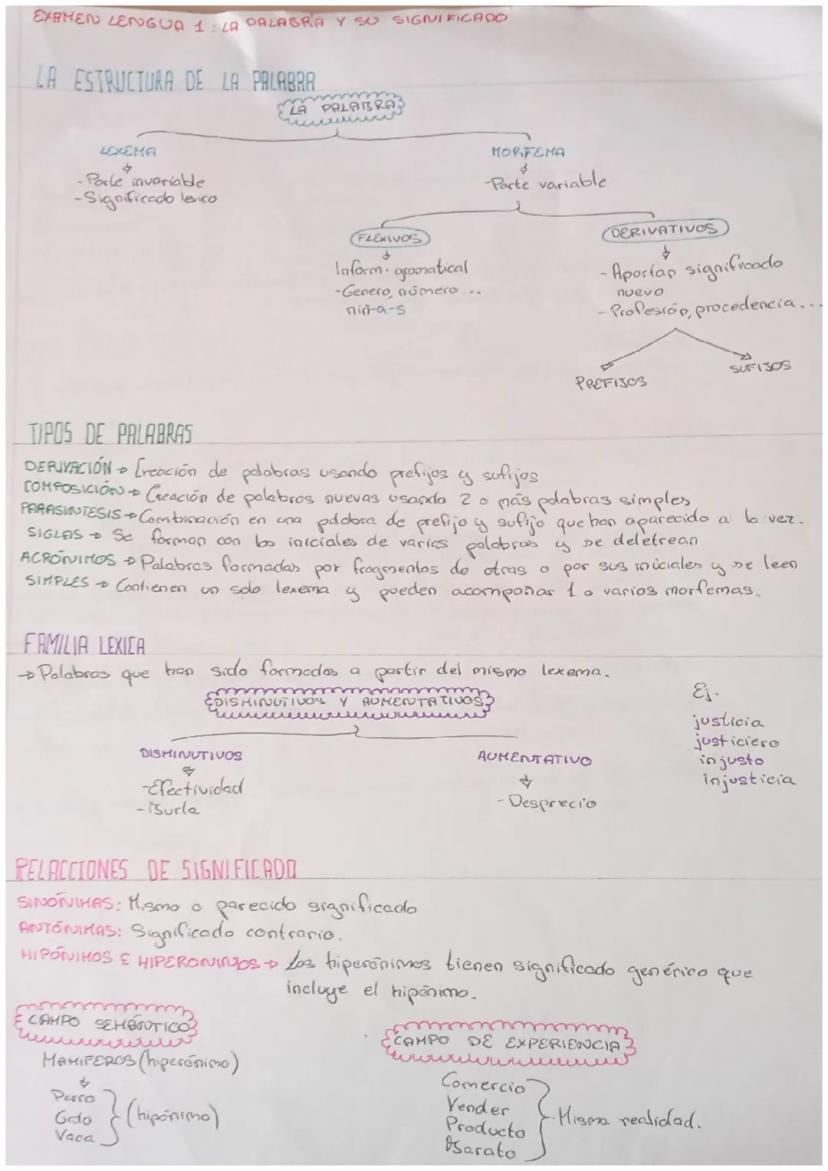 EXAMEN LENGUA 1: LA PALABRA Y SU SIGNIFICADO
LA ESTRUCTURA DE LA PALABRA
LA PALABRA
LEXEMA
MORFEMA
- Parte invariable
- Significado lexico
- Parte variable
FLEXIVOS
DERIVATIVOS
Inform. gramatical
- Genero, número...
niñ-a-s
- Aportan significado
nuevo
- Profesión, procedencia...
PREFIJOS
SUFIJOS
TIPOS DE PALABRAS
DERIVACIÓN → Creación de palabras usando prefijos y sufijos
COMPOSICIÓN → Creación de palabras nuevas usando 2 o más palabras simples
PARASINTESIS → Combinación en una palabra de prefijo y sufijo que han aparecido a la vez.
SIGLAS → Se forman con las iniciales de varias palabras y se deletrean
ACRÓNIMOS → Palabras formadas por fragmentos de otras o por sus iniciales y se leen
SIMPLES → Contienen un solo lexema y pueden acompañar 1 o varios morfemas.
FAMILIA LEXICA
→ Palabras que han sido formadas a partir del mismo lexema.
DISMINUTIVOS Y AUMENTATIVOS
Ej.
justicia
justiciero
injusto
injusticia
DISMINUTIVOS
AUMENTATIVO
- Efectividad
- Burla
- Desprecio
RELACCIONES DE SIGNIFICADO
SINÓNIMAS: Mismo o parecido significado
ANTÓNIMAS: Significado contrario.
HIPÓNIMOS E HIPERONIMOS → Los hiperónimos tienen significado genérico que
incluye el hipónimo.
CAMPO SEMÁNTICO
CAMPO DE EXPERIENCIA
MAMIFEROS (hiperónimo)
Perro
Gato
Vaca
(hipónimo)
Comercio
Vender
Producto
Barato
Misma realidad.